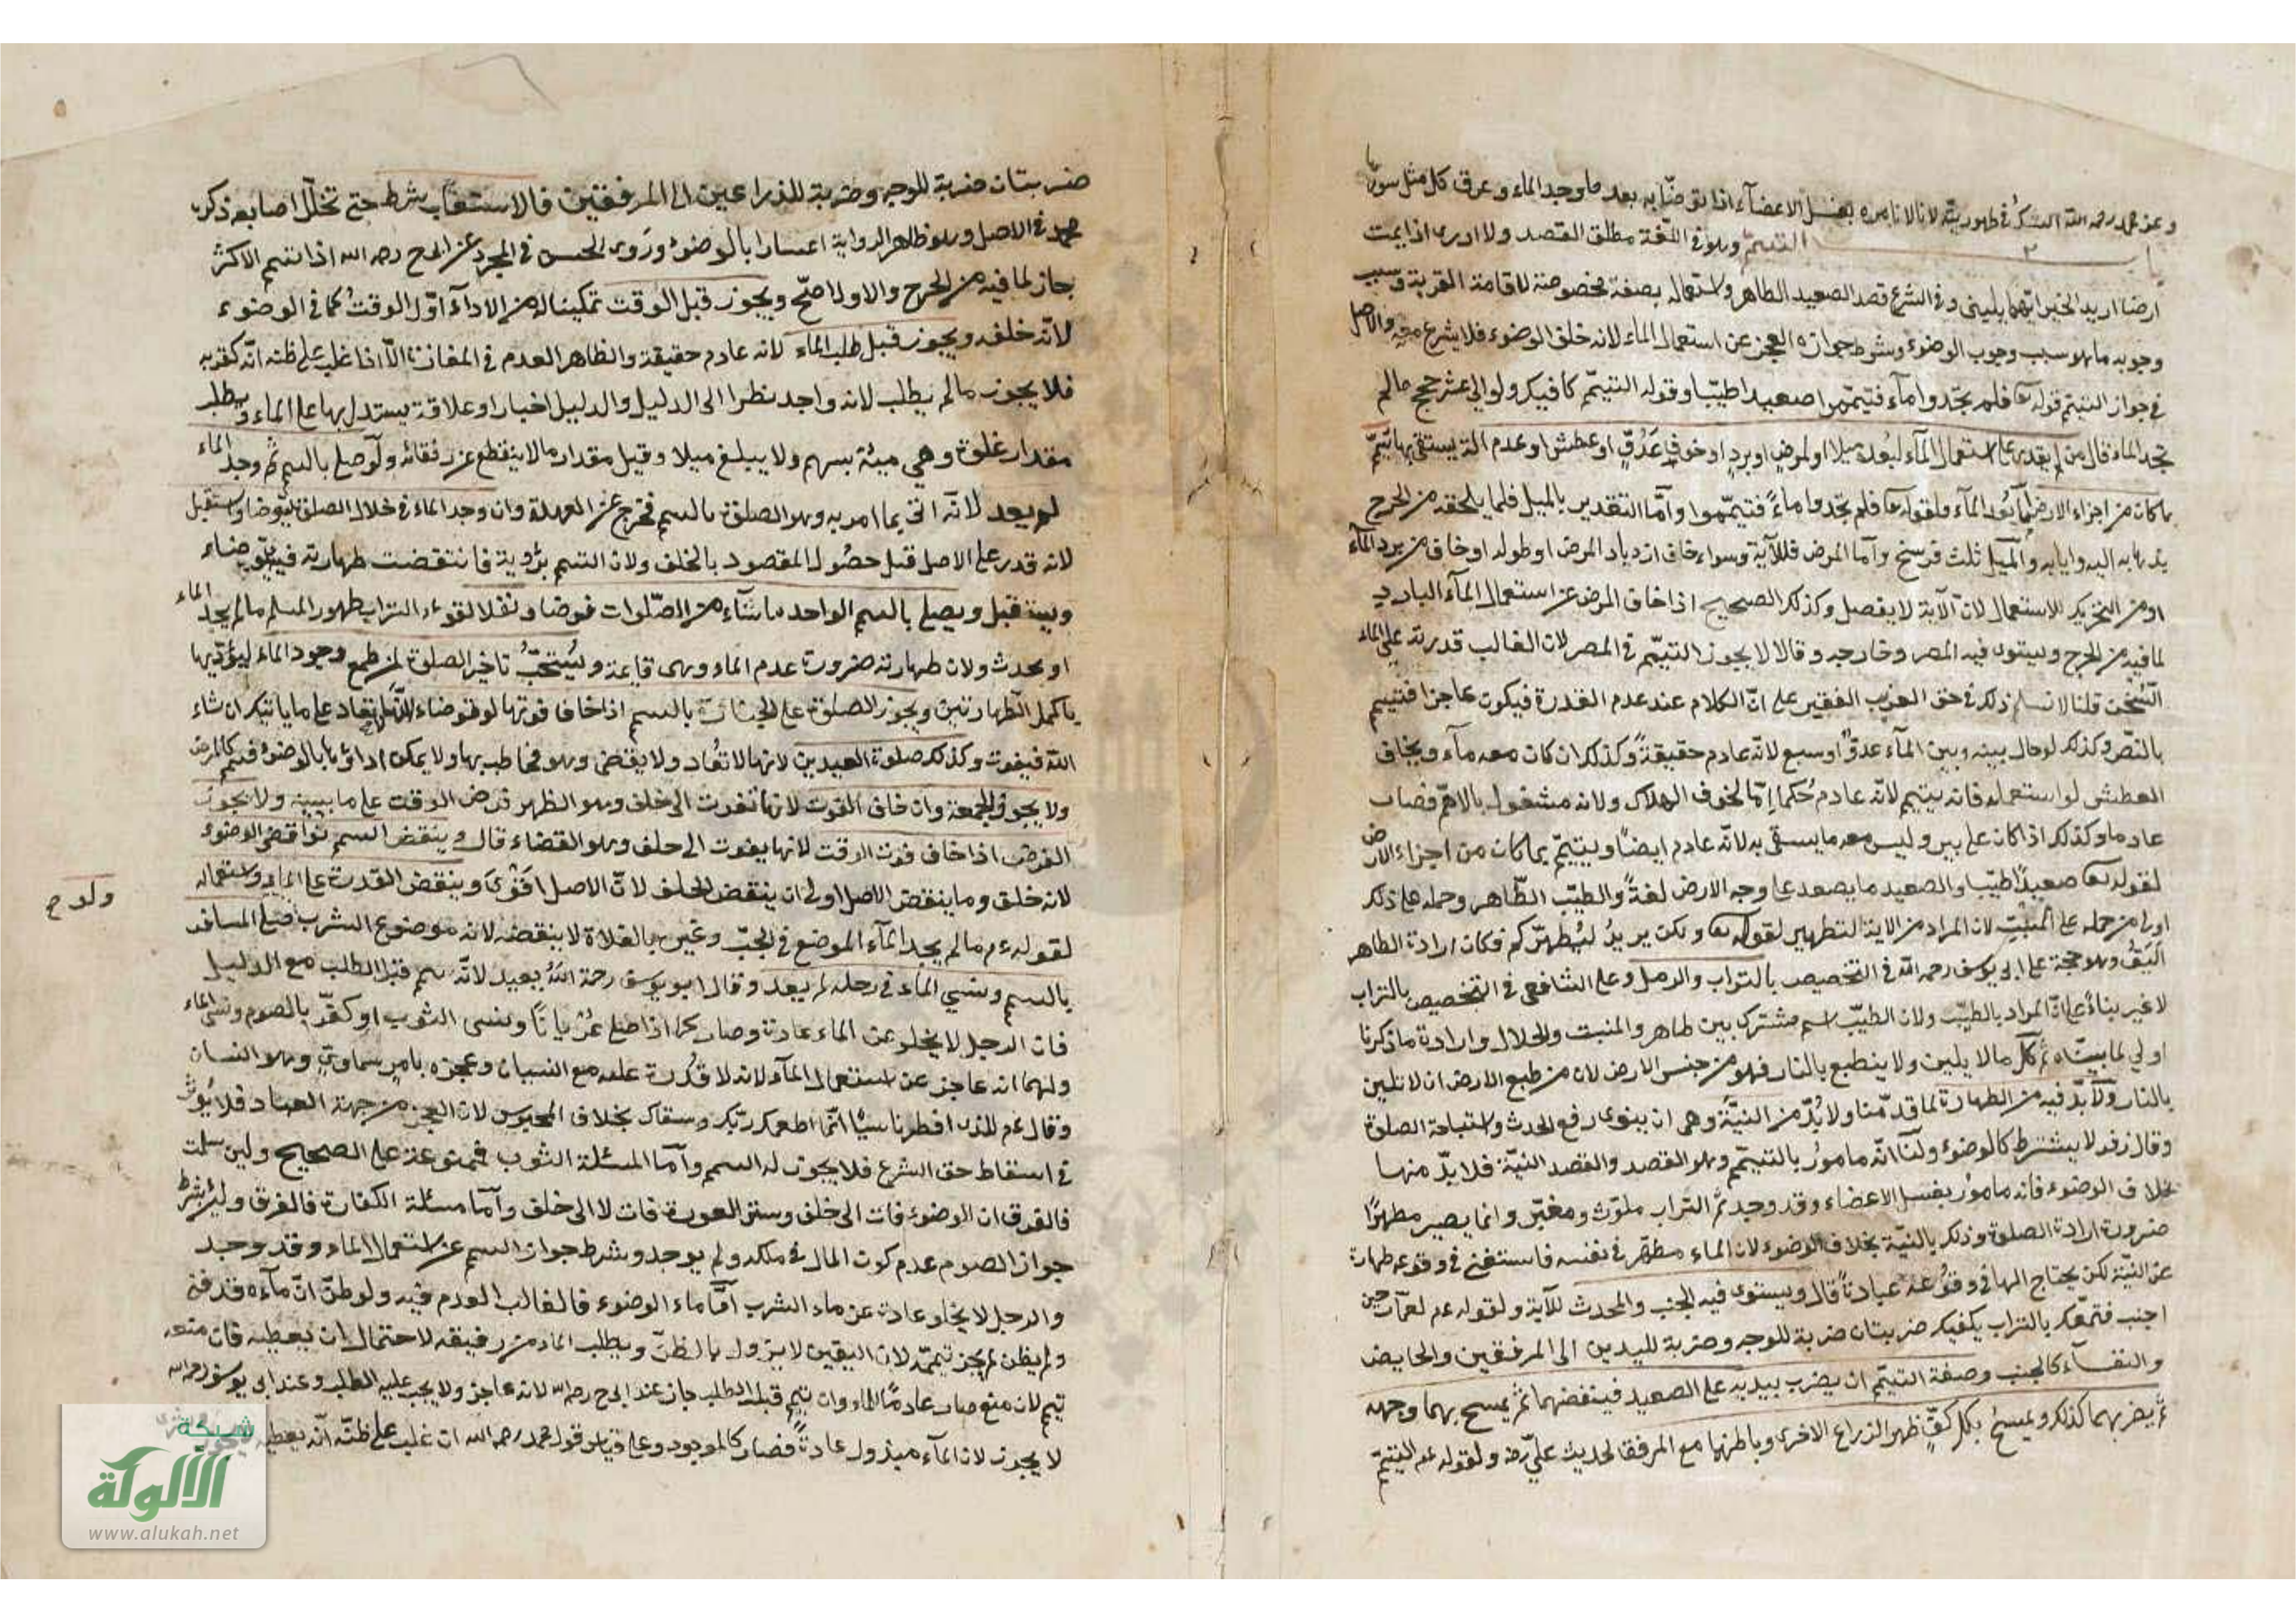 وعن محمد رحمه الله الشك في طهوريته لانا لا نامره بغسل الاعضآء اذا توضّأ به بعد ما وجد الماء وعرق كل مثل سورٔه
باب التيمّم وهو في اللغة مطلق القصد ولا ادرى اذا يممت
ارضا اريد الخير ايّهما يلينى وفى الشرع قصد الصعيد الطاهر واستعماله بصفة مخصوصة لاقامة القربة وسبب
وجوبه ما هو سبب وجوب الوضوء وشرط جوازه العجز عن استعمال الماء لانه خلق الوضوء فلا يشرع معه والاصل
فى جواز التيمّم قوله تعا فلم تجدوا مآء فتيمّموا صعيدا طيّبا وقوله التيمّم كافيك ولو الى عشر حجج مالم
تجد الماء قال من لم يقدر على استعمال المآء لبُعده ميلا او لمرض او برد او خوف عدوّ او عطش او عدم آلة يستقى بها تيمّم
بما كان من اجزاء الارض امّا بُعد المآء فلقوله تعا فلم تجدوا ماءً فتيمّموا وامّا التقدير بالميل فلما يلحقه من الحرج
بذهابه اليه وايابه والميل ثلث فرسخ وامّا المرض فللآية وسواء خاف ازدياد المرض او طوله او خاف من برد المآء
او من التحريك للاستعمال لانّ الآية لا يفصل وكذلك الصحيح اذا خاف المرض عن استعمال المآء البارد
لما فيه من الحرج ويستوى فيه المصر وخارجه وقالا لا يجوز التيمّم فى المصر لان الغالب قدرته على الماء
السخن قلنا لا نسلم ذلك فى حق الغريب الفقير على انّ الكلام عند عدم القدرة فيكون عاجزا فتيمم
بالنصّ وكذلك لو حال بينه وبين المآء عدوّ او سبع لانّه عادم حقيقةً وكذلك ان كان معه مآء ويخاف
العطش لو استعمله فانه يتيمم لانّه عادم حُكما امّا لخوف الهلاك ولانه مشغول بالاهمّ فصاب
عادما وكذلك اذا كان على بير وليس معه ما يستقى به لانّه عادم ايضاً ويتيمّم بما كان من اجزاء الارض
لقوله تعا صعيداً طيّبا والصعيد ما يصعد على وجه الارض لغةً والطيّب الطّاهر وحمله على ذلك
اولى من حمله على المنبت لان المراد من الاية التطهير لقوله تعا ولكن يريدُ ليُطهّركم فكان ارادة الطاهر
اليَقُ وهو حجة على ابى يوسف رحمه الله فى التخصيص بالتراب والرمل وعلى الشافعى فى التخصيص بالتراب
لا غير بناءً على انّ المراد بالطيّب ولان الطيّب اسم مشترك بين طاهر والمنبت والحلال وارادة ما ذكرنا
اولى لما بيّناه ثمّ كلّ مالا يلين ولا ينطبع بالنار فهو من جنس الارض لان من طبع الارض ان لا تلين
بالنار ولا بدّ فيه من الطهارة لما قدّمنا ولا بُدّ من النيّة وهى ان ينوى رفع الحدث واستباحة الصلوة
وقال زفر لا يشترط كالوضوء ولنا انّه مامورٌ بالتيمّم وهو القصد والقصد النيّة فلا بدّ منها
بخلاف الوضوء فانه مامورٌ بغسل الاعضاء وقد وجد ثمّ التراب ملوّث ومغبّر وانما يصير مطهرًا
ضرورة ارادة الصلوة وذلك بالنيّة بخلاف الوضوء لان الماء مطهّر فى نفسه فاستغنى فى وقوعه طهارة
عن النيّة لكن يحتاج اليها فى وقوعه عبادةً قال ويستوى فيه الجنب والمحدث للآية ولقوله عم لعمّار حين
اجنب فتمعّك بالتراب يكفيك ضربتان ضربة للوجه وضربة لليدين الى المرفقين والحايض
والنفسآء كالجنب وصفة التيمّم ان يضرب بيديه على الصعيد فينفضهما ثمّ يمسح بهما وجهه
ثمّ يضربهما كذلك ويمسحُ بكل كفٍّ ظهر الذراع الاخرى وباطنها مع المرفق لحديث علىّ رضه ولقوله عم التيمّم
ضربتان ضربة للوجه وضربة للذراعين الى المرفقين فالاستيعاب شرط حتى تخلّل اصابعه ذكره
محمد فى الاصل وهو ظاهر الرواية اعتبارا بالوضوء ورَوى الحسن فى المجرد عن ابى ح رحمه الله اذا تيمم الاكثر
جاز لما فيه من الحرج والاول اصحّ ويجوز قبل الوقت تمكينا له من الاداء اوّل الوقت كما فى الوضوء
لانّه خلفه ويجوز قبل طلب الماء لانه عادم حقيقة والظاهر العدم فى المفازة الّا اذا غلب على ظنه انّه كقربه
فلا يجوز مالم يطلب لانه واجد نظرا الى الدليل والدليل اخبار او علاقة يستدل بها على الماء ويطلب
مقدار غلوة وهى مبئة بسهم ولا يبلغ ميلا وقيل مقدار مالا ينقطع عن رفقائه ولو صلّى بالتيمم ثم وجد الماء
لم يعد لانّه اتى بما امر به وهو الصلوة بالتيمم فخرج عن العهدة وان وجد الماء فى خلال الصلوة توضا واستقبل
لانه قدر على الاصل قبل حصول المقصود بالخلف ولان التيمم برؤية فانتقضت طهارته فيتوضاء
ويستقبل ويصلى بالتيمم الواحد ما شاء من الصّلوات فرضا ونفلا لقوءم التراب طهور المسلم مالم يجد الماء
او يحدث ولان طهارته ضرورة عدم الماء وهى قايمة ويُستحبّ تاخير الصلوة لمن طمع وجود الماء ليؤدّيها
باكمل الطهارتين ويجوز الصلوة على الجنازة بالتيمم اذا خاف فوتها لو توضاء لانّها لا تعاد على ما ياتيك ان شاء
الله فيفوت وكذلك صلوة العيدين لانها لا تُعاد ولا يقضى وهو مخاطب بها ولا يمكن اداؤها بالوضوء فتيمم كالمرض
ولا يجوز للجمعة وان خاف الفوت لانها تفوت الى خلف وهو الظهر فرض الوقت على ما نبيّنه ولا يجوز
الفرض اذا خاف فوت الوقت لانها يفوت الى خلف وهو القضاء قال وينقض التيمم نواقض الوضوء
لانه خلق وما ينقض الاصل اولى ان ينقض الخلف لانّ الاصل اقوىَ وينقض القدرة على الماء واستعماله
لقوله عم مالم يجد المآء الموضع فى الجبّ وغيره بالفلاة لا ينقضه لانه موضوع للشرب صلّى المسافر
ولد ح
بالتيمم ونسي الماء فى رحله لم يعد وقال ابو يوسف رحمة اللهُ يعيد لانّه تيمم قبل الطلب مع الدليل
فان الرحل لا يخلو عن الماء عادة وصار كما اذا صلى عُريانًا ونسى الثوب او كفّر بالصوم ونسى الماء
ولهما انه عاجز عن استعمال المآء لانه لا قُدرة عليه مع النسيان وعجزه بامرٍ سماوى وهو النسيان
وقال عم للذى افطر ناسيًا انّما اطعمك ربّك وسقاك بخلاف المحبوس لان العجز من جهة العباد فلا يُوثّر
فى اسقاط حق الشرع فلا يجوز له التيمم وامّا المسئلة الثوب فممنوعة على الصحيح ولئن سلمت
فالفرق ان الوضوء فات الى خلف وستر العورة فات لا الى خلف وامّا مسئلة الكفارة فالفرق وليئ شرط
جواز الصوم عدم كون المال فى ملكه ولم يوجد وشرط جواز التيمم عن استعمال الماء وقد وجد
والرحل لا يخلو عادة عن ماء الشرب امّا ماء الوضوء فالغالب العدم فيه ولو ظنّ انّ مآءه قد فنى
ولم يظن لم يجز تيمّمه لان اليقين لا يزول بالظنّ ويطلب الماء من رفيقه لاحتمال ان يعطيه فان منعه
تيمم لان منع صار عادمًا للماء وان تيمم قبل الطلب جاز عند ابى ح رحمه الله لانه عاجز ولا يجب عليه الطلب وعند ابى يوسف رحمه الله
لا يجوز لان المآء مبذول عادةً فصار كالموجود وعلى قياس قول محمد رحمه الله ان غلب على ظنّه انّه يعطيه
شبكة
الألوكة
www.alukah.net